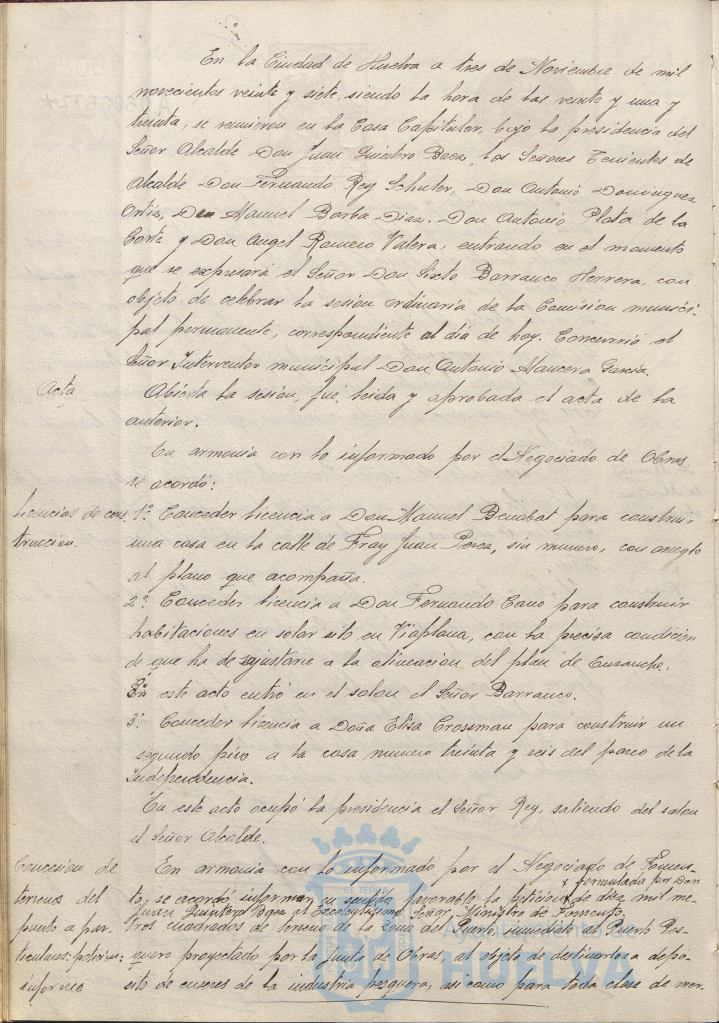 En la Ciudad de Huelva a tres de Noviembre de mil
novecientos veinte y siete, siendo la hora de las veinte y una y
treinta, se reunieron en la Casa Capitular, bajo la presidencia del
Señor Alcalde Don Juan Quintero Baez, los Señores Tenientes de
Alcalde Don Fernando Rey Schuler, Don Antonio Dominguez
Ortiz, Don Manuel Barba Diaz, Don Antonio Plata de la
Corte y Don Angel Romero Valera, entrando en el momento
que se expresará el Señor Don Sixto Barranco Herrera, con
objeto de celebrar la sesion ordinaria de la Comision munici-
pal permanente, correspondiente al dia de hoy. Concurrió el
Señor Interventor municipal Don Antonio Mancera Garcia.
Acta
Abierta la sesion, fué leida y aprobada el acta de la
anterior.
En armonia con lo informado por el Negociado de Obras
se acordó:
Licencias de cons-
truccion.
1º Conceder licencia a Don Manuel Benabat para construir
una casa en la calle de Fray Juan Perez, sin numero, con arreglo
al plano que acompaña.
2º Conceder licencia a Don Fernando Cano para construir
habitaciones en solar sito en Viaplana, con la precisa condición
de que ha de ajustarse a la alineacion del plan de Ensanche.
En este acto entró en el salon el Señor Barranco.
3º Conceder licencia a Doña Elisa Crossman para construir un
segundo piso a la casa numero treinta y seis del paseo de la
Independencia.
En este acto ocupó la presidencia el Señor Rey, saliendo del salon
el Señor Alcalde.
Concesion de
terrenos del
puerto a par-
ticulares: peticion:
informe
En armonia con lo informado por el Negociado de Fomen-
formulada por Don
to, se acordó informar en sentido favorable la peticion de diez mil me-
Juan Quintero Baez al Excelentisimo Señor Ministro de Fomento
tros cuadrados de terreno de la zona del Puerto, inmediato al Puerto Pes-
quero proyectado por la Junta de Obras, al objeto de destinarlos a depo-
sito de enseres de la industria pesquera, asi como para toda clase de mer-
HUELVA